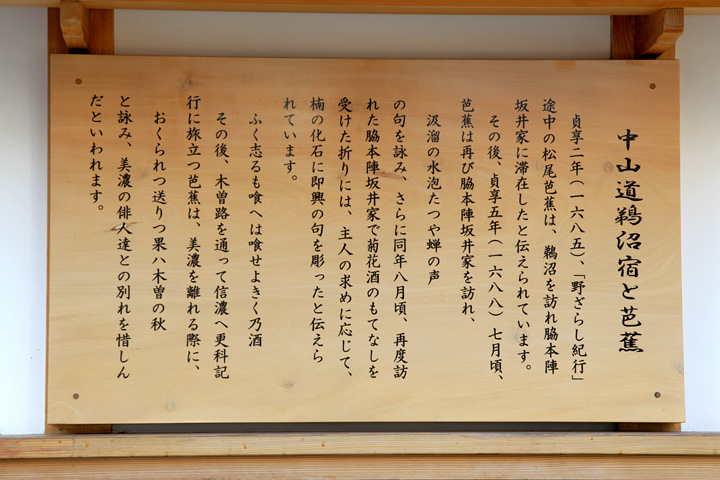 中山道鵜沼宿と芭蕉
貞享二年（一六八五）、「野ざらし紀行」
途中の松尾芭蕉は、鵜沼を訪れ脇本陣
坂井家に滞在したと伝えられています。
その後、貞享五年（一六八八）七月頃、
芭蕉は再び脇本陣坂井家を訪れ、
汲溜の水泡たつや蝉の声
の句を詠み、さらに同年八月頃、再度訪
れた脇本陣坂井家で菊花酒のもてなしを
受けた折りには、主人の求めに応じて、
楠の化石に即興の句を彫ったと伝えら
れています。
ふく志るも喰へは喰せよきく乃酒
その後、木曽路を通って信濃へ更科記
行に旅立つ芭蕉は、美濃を離れる際に、
おくられつ送りつ果ハ木曽の秋
と詠み、美濃の俳人達との別れを惜しん
だといわれます。